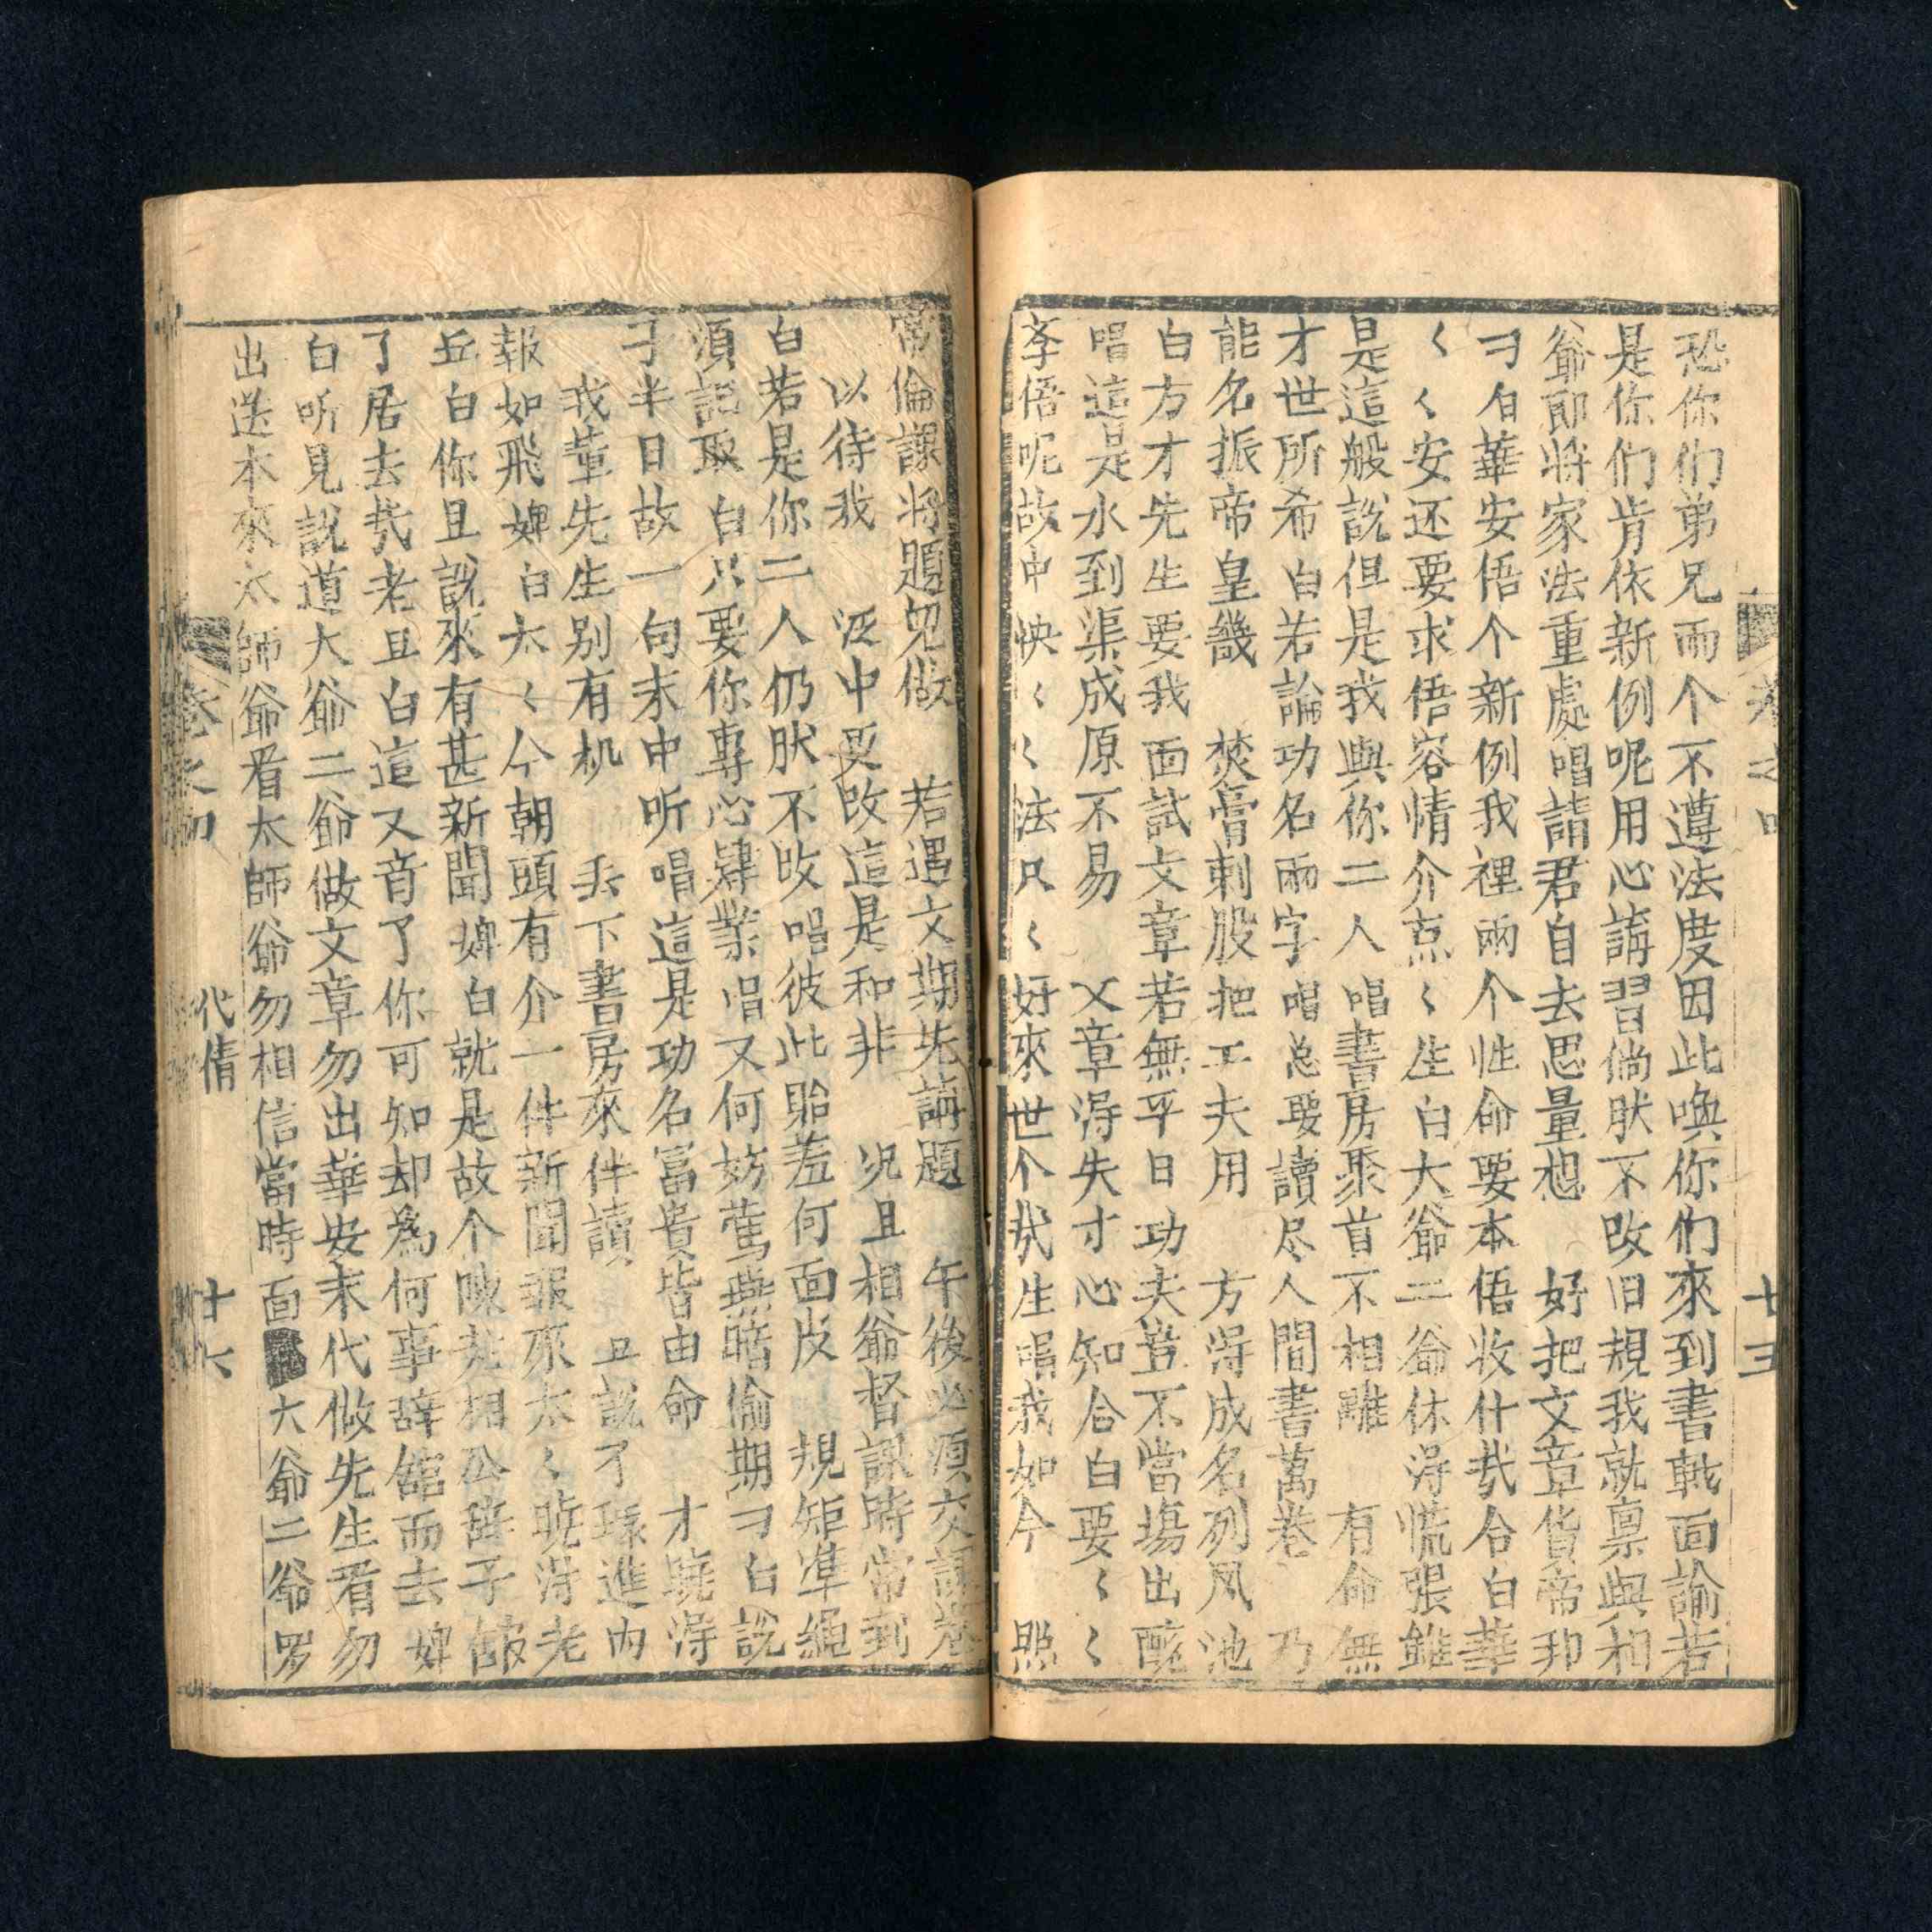 卷之四
十三
恐你们弟兄两个不遵法度因此唤你们來到書𢧐面諭若
是你们肯依新例呢用心講習倘肰不改旧規我就禀與相
爺即將家法重處唱請君自去思量想　好把文章貨帝邦
白華安俉个新例我裡兩个性命要本俉收什㦲合白華
〱〱安还要求俉容情介点〱生白大爺二爺休淂慌張雖
是這般說但是我與你二人唱書房聚首不相離　有命無
才世所希白若論功名兩字唱总要讀尽人間書萬卷　乃
能名振帝皇畿　焚膏刺股把工夫用　方淂成名列凤池
白方才先生要我面試文章若無平日功夫豈不當塲出醜
唱這是水到渠成原不易　文章淂失寸心知合白要〱〱
李俉呢故中怏〱〱法只〱好來世个㦲生唱我如今　照
常倫課将題皃做　若遇文期先講題　午後必須交課卷
以待我　改中更改這是和非　况且相爺督課時常到
白若是你二人仍肰不改唱彼此貽羞何面皮　規矩準繩
須記取白只要你專心肄業唱又何妨鶯燕暗偷期白說
半日故一句末中听唱這是功名富貴皆由命　才曉淂
我輩先生别有机　丢下書房來伴讀　且說了環進內
報如飛婢白太〱今朝頭有介一件新聞報來太〱曉淂老
丘白你且說來有甚新聞婢白就是故个陳先相公辞子館
了居去㦲老旦白這又竒了你可知却為何事辞舘而去婢
白听見說道大爺二爺做文章勿出華安末代做先生看勿
出送本來太師爺看太師爺勿相信當時面大爺二爺罗
卷之四
代倩
十六